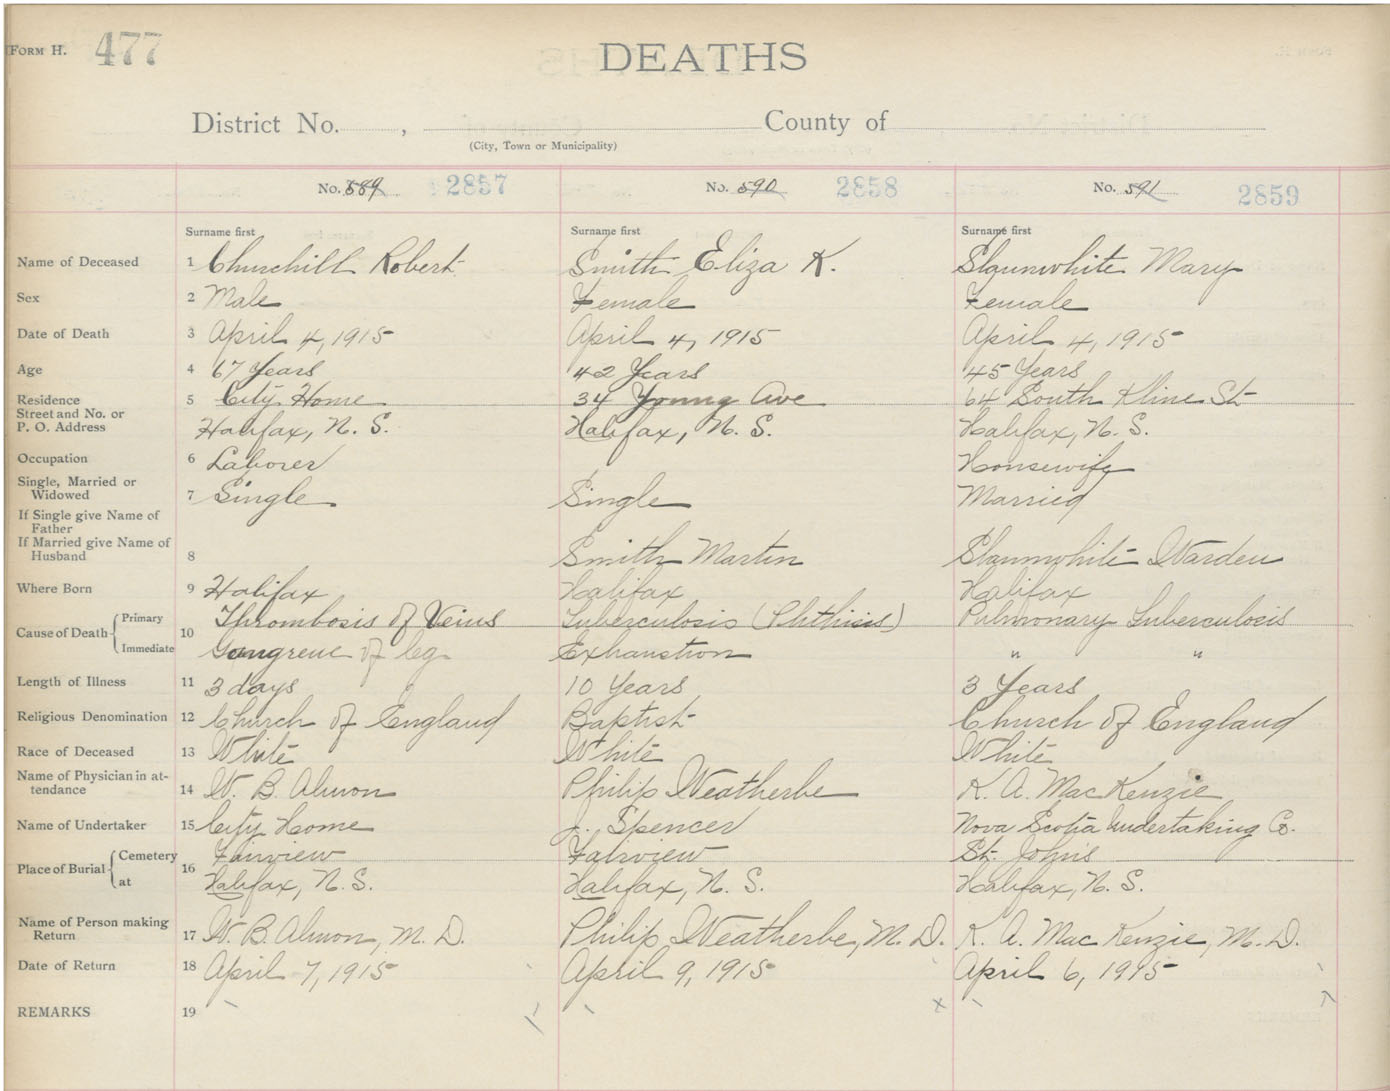 FORM H. 477 DEATHS
District No. , County of
(City, Town or Municipality)
No. 589 2857 No. 590 2858 No. 591 2859
Surname first Surname first Surname first
Name of Deceased 1 Churchill Robert Smith Eliza K. Slaunwhite Mary
Sex 2 Male Female Female
Date of Death 3 April 4, 1915 April 4, 1915 April 4, 1915
Age 4 67 Years 42 Years 45 Years
Residence 5 City Home 34 Young Ave 64 South Kline St
Street and No. or
P. O. Address Halifax, N. S. Halifax, N. S. Halifax, N. S.
Occupation 6 Laborer Housewife
Single, Married or
Widowed 7 Single Single Married
If Single give Name of
Father
If Married give Name of
Husband 8 Smith Martin Slaunwhite Warden
Where Born 9 Halifax Halifax Halifax
Cause of Death Primary 10 Thrombosis of Veins Tuberculosis (Phthisis) Pulmonary Tuberculosis
Immediate Gangrene of leg Exhaustion " "
Length of Illness 11 3 days 10 Years 3 Years
Religious Denomination 12 Church of England Baptist Church of England
Race of Deceased 13 White White White
Name of Physician in at-
tendance 14 W. B. Almon Philip Weatherbe K. A. MacKenzie
Name of Undertaker 15 City Home J. Spencer Nova Scotia Undertaking Co.
Place of Burial Cemetery 16 Fairview Fairview St. John's
at Halifax, N. S. Halifax, N. S. Halifax, N. S.
Name of Person making
Return 17 W. B. Almon, M. D. Philip Weatherbe, M. D. K. A. MacKenzie, M. D.
Date of Return 18 April 7, 1915 April 9, 1915 April 6, 1915
REMARKS 19